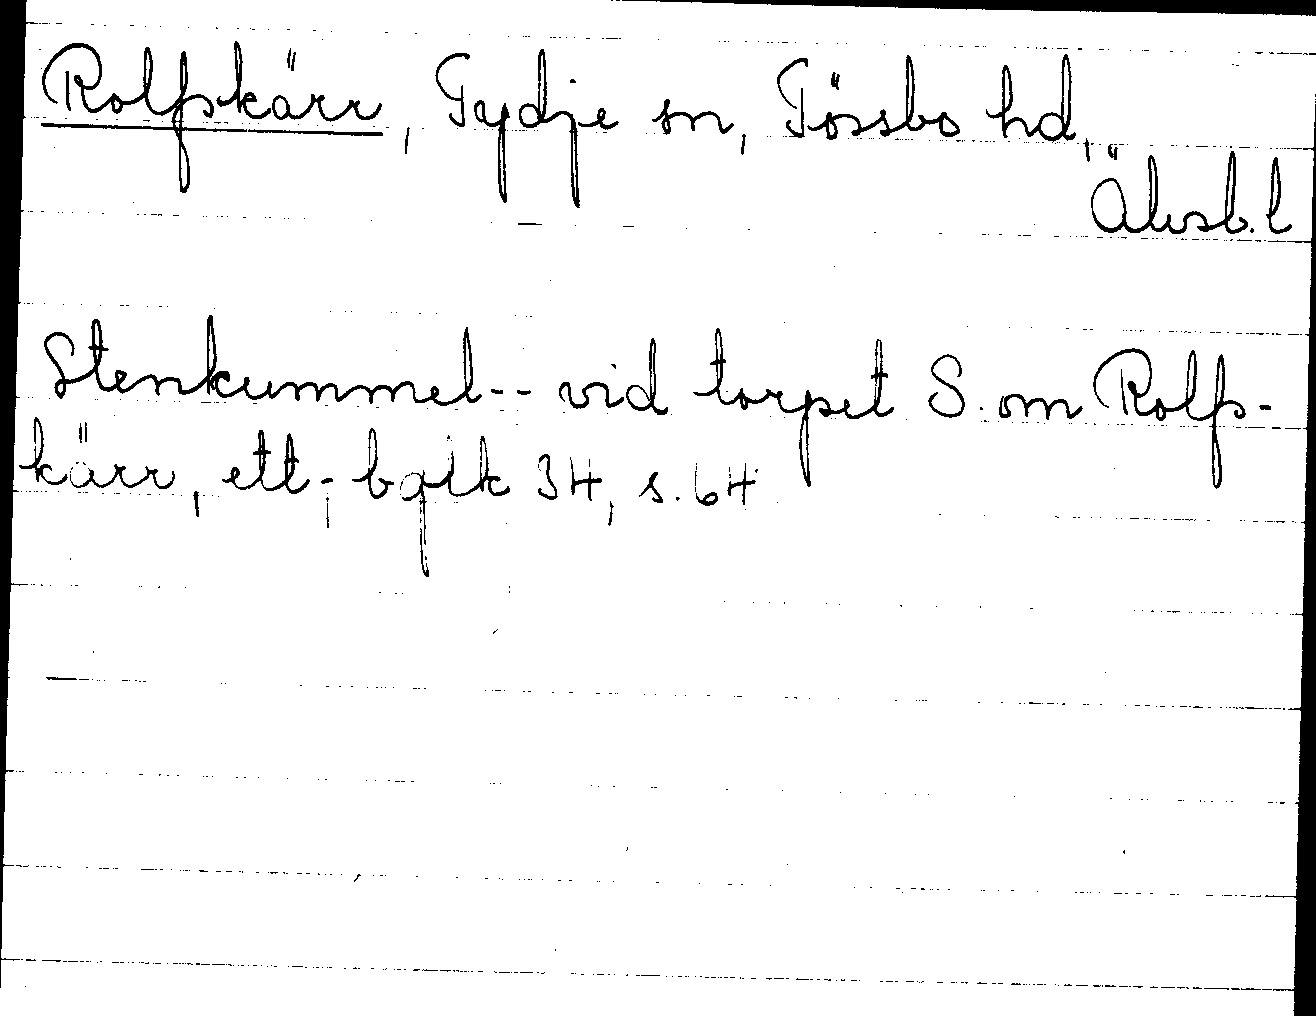 Rolfskärr, Tydje sn, Tössbo hd,
Älvsb. l
Stenkummel-- vid torpet S. om Rolfs-
kärr, ett; bqlk 34, s. 64